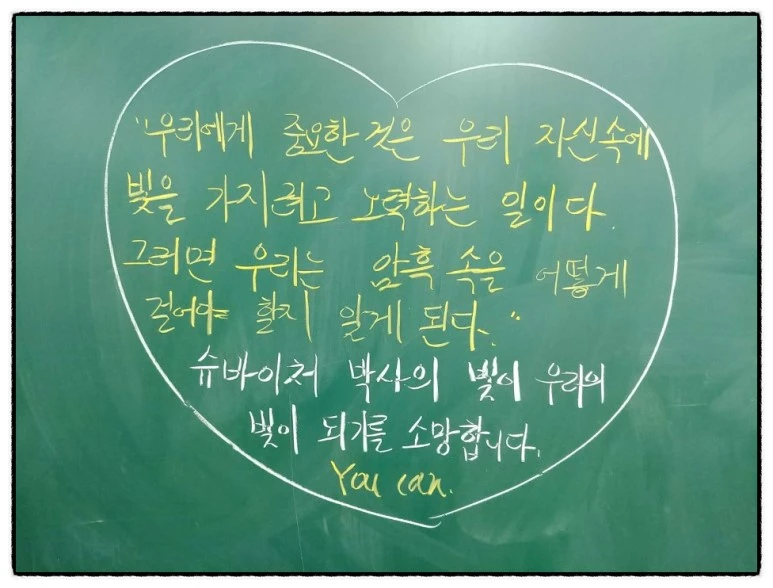 "우리에게 중요한 것은 우리 자신속에
빛을 가지려고 노력하는 일이다.
그러면 우리는 암흑 속을 어떻게
걸어야 할지 알게 된다."
슈바이처 박사의 빛이 우리의
빛이 되기를 소망합니다.
You can.